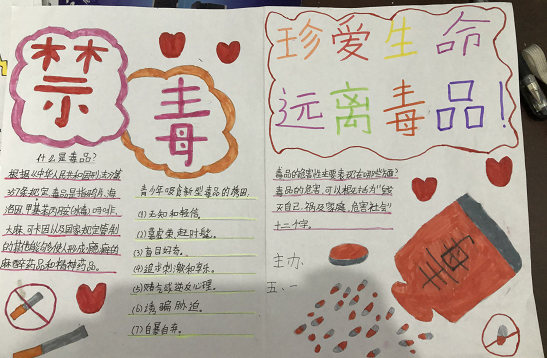 禁毒
珍爱生命
远离毒品!
什么是毒品?
根据《中华人民共和国刑法》第
357条规定,毒品是指鸦片、海
洛因、甲基苯丙胺(冰毒)、吗啡、
大麻、可卡因以及国家规定管制
的其他能够使人形成瘾癖的
麻醉药品和精神药品。
青少年吸食新型毒品的诱因
(1)无知和轻信。
(2)慕虚荣、赶时髦。
(3)盲目好奇。
(4)追求刺激和享乐。
(5)赌气或逆反心理。
(6)诱骗胁迫。
(7)自暴自弃。
毒品的危害性主要表现在哪些方面?
毒品的危害,可以概括为"毁
灭自己、祸及家庭、危害社会"
十二个字。
主办:
五、一
毒